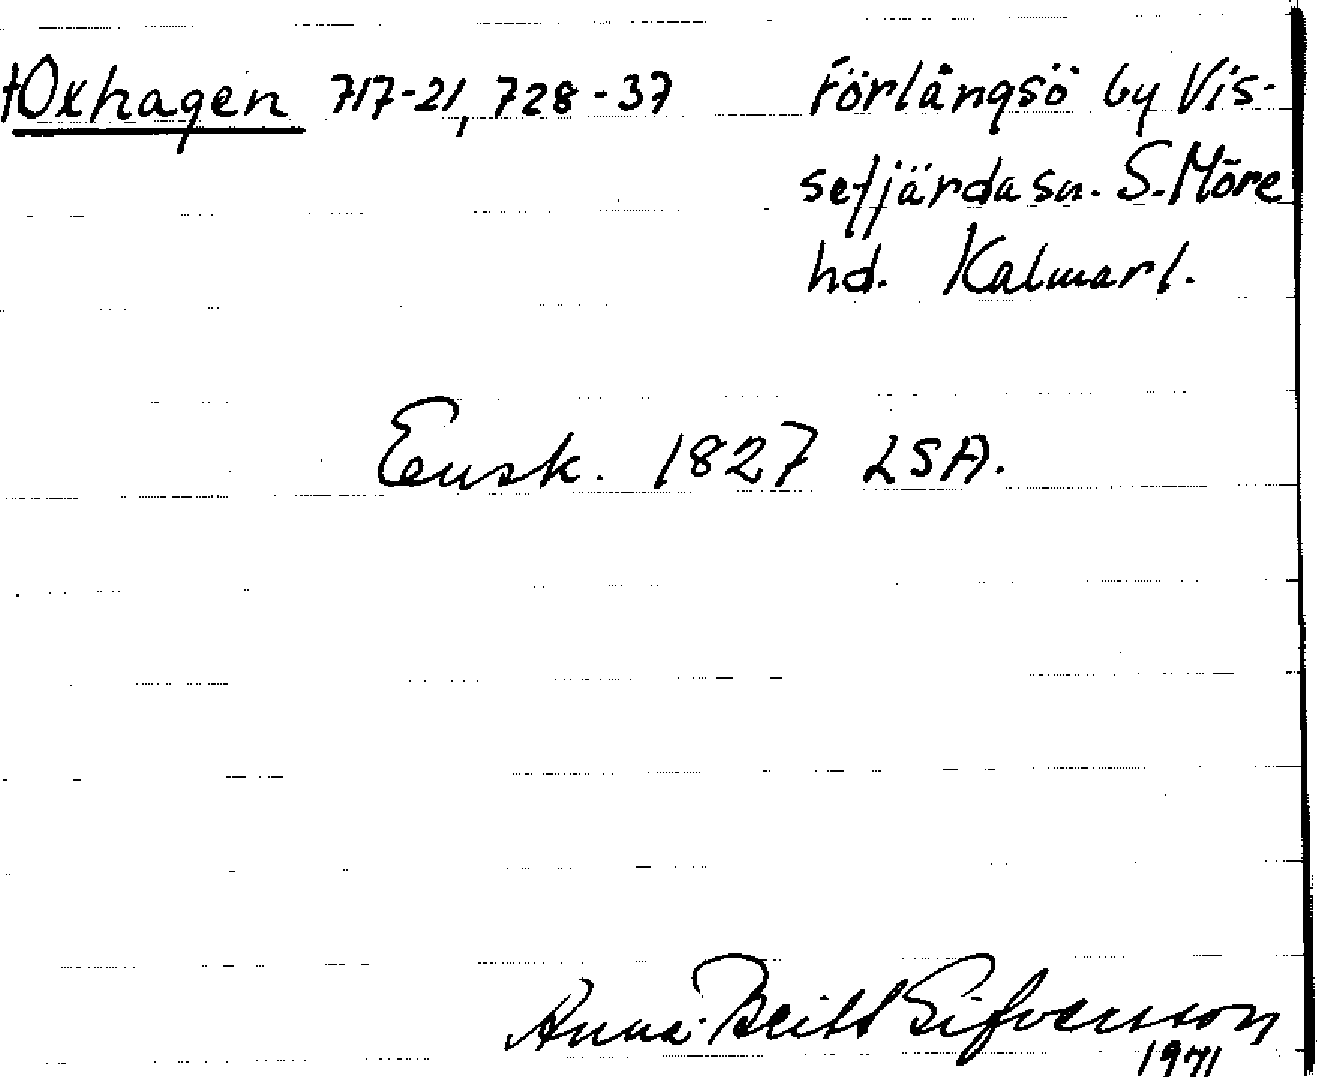 †Oxhagen 717-21, 728-37 Förlångsö by Vis-
sefjärda sn. S. Möre
hd. Kalmar l.
Ensk. 1827 LSA.
Anna-Britt Sifvensson
1971